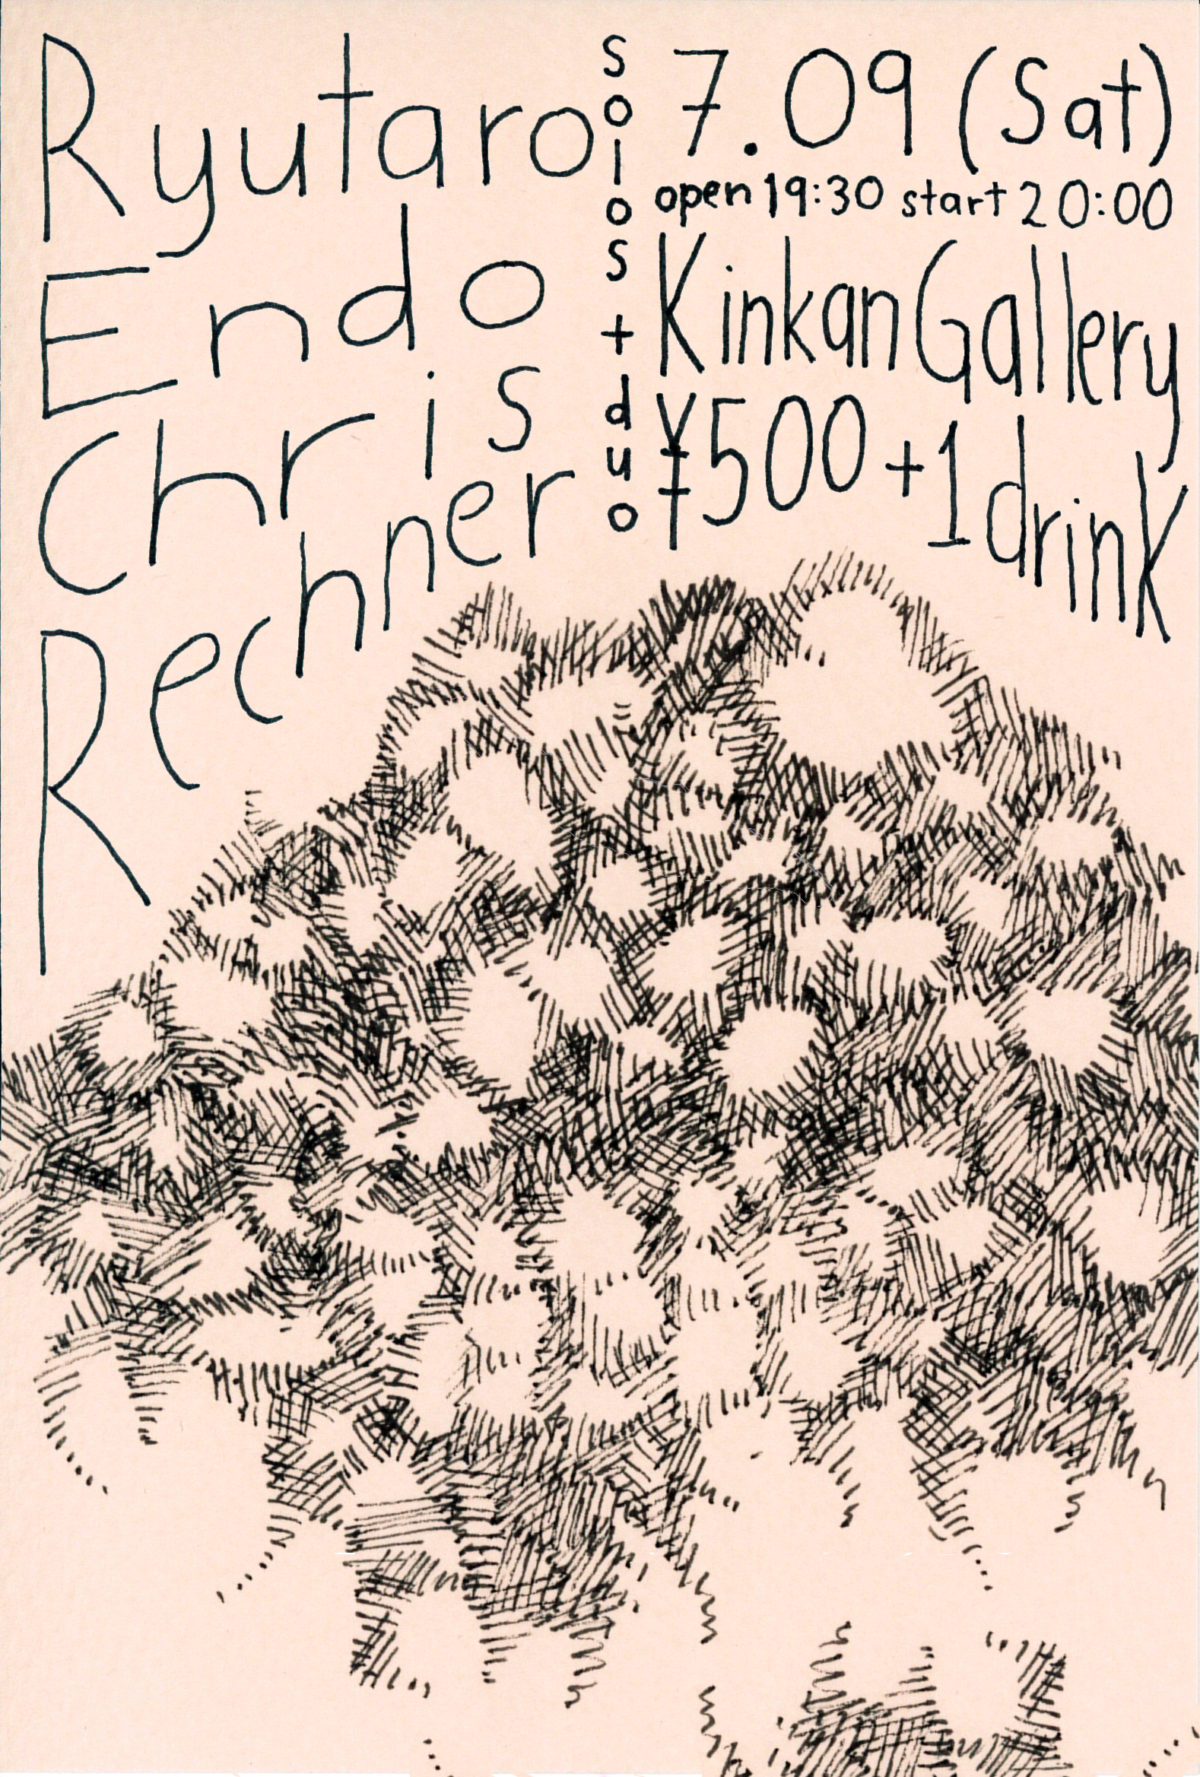 Ryutaro
Endo
Chris
Rechner
solos + duo
7.09 (Sat)
open 19:30 start 20:00
Kinkan Gallery
¥500+1drink